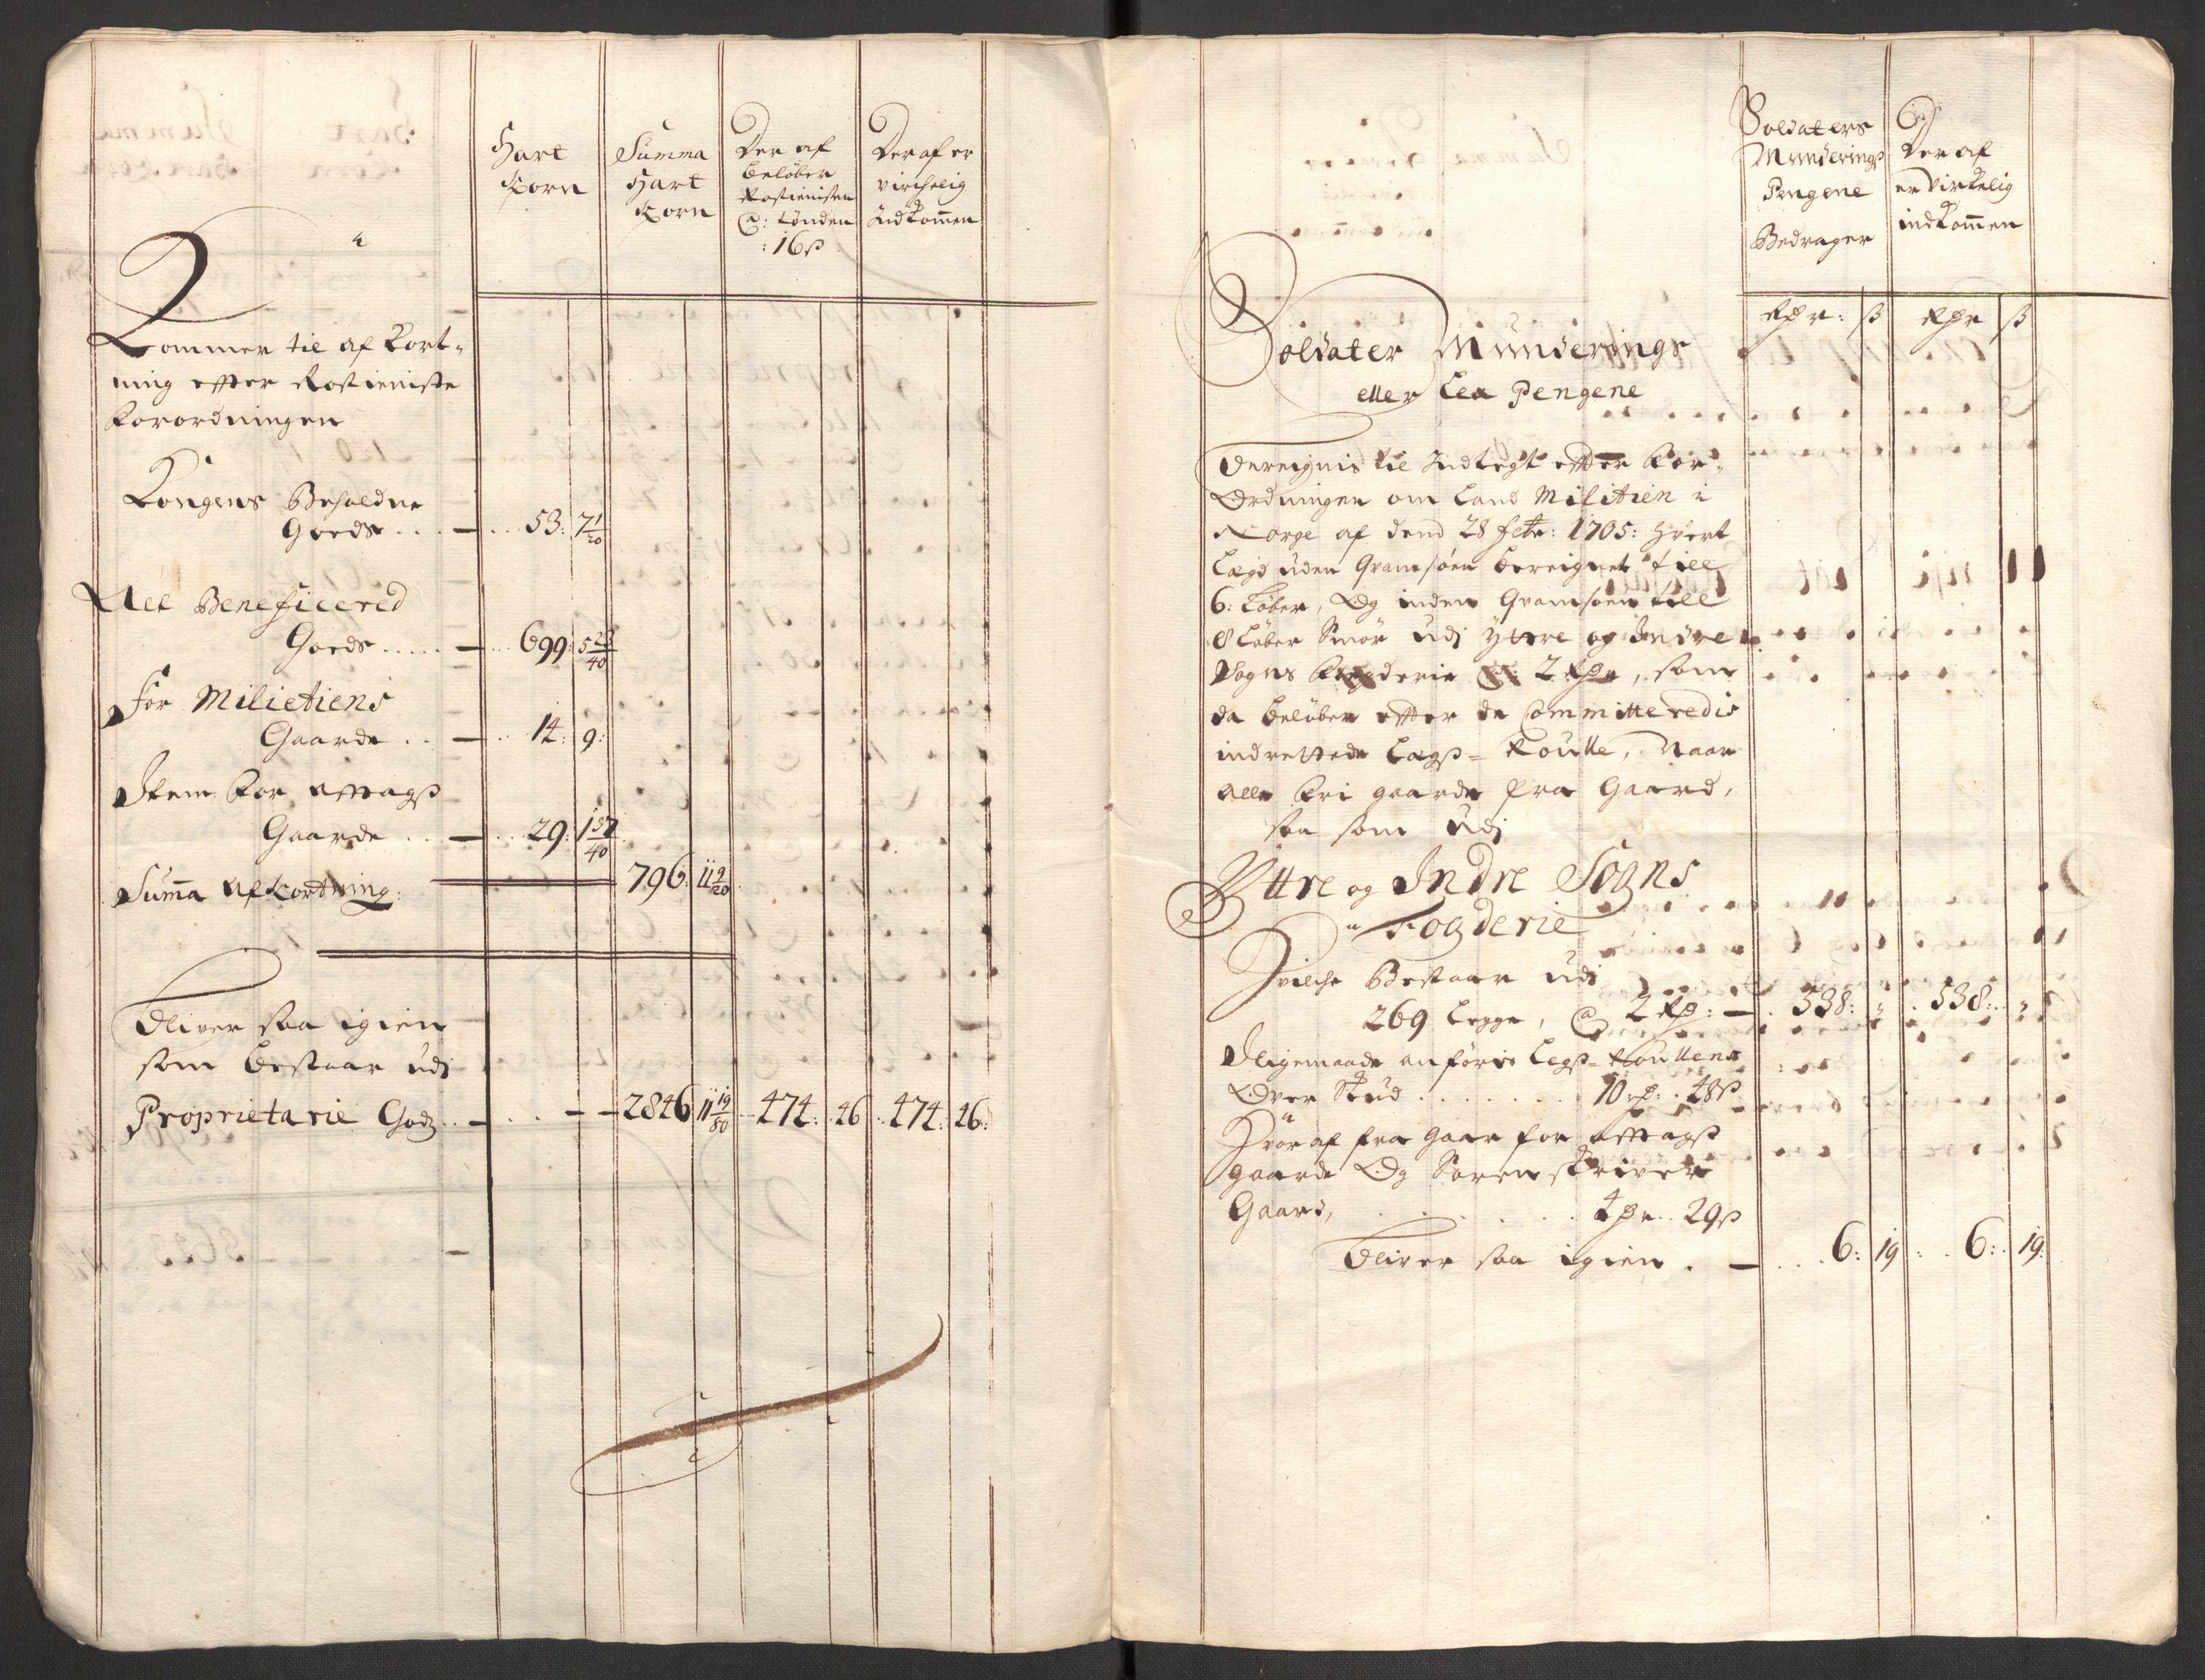 Hart
Korn
Summa
Hart
Korn
Der af
beløber
Rostienisten
@: Tønden
:16ß
Der af er
virchelig
Indkommen
Kommer til af kort-
ning effter Rostieniste
Forordningen
Kongens Beholdne
Goeds .... — .. 53: 7 1/20
Alt Beneficered
Goeds ..... — .. 699: 5 23/40
For Milietiens
Gaarde .. — .. 14: 9:
Item for afftags
Gaarde .. — .. 29: 1 37/40
Summa Afkortning: 796: 11 9/20
Bliver saa igien
som bestaar udj
Proprietarie Godz .. — 2846 11 19/80 .. 474: .. 46 .. 474: 46:
Soldaters
Munderings
Pengene
Bedrager
Der af
er virkelig
indkommen
Rdr: ß Rdr ß
Soldater Munderings
eller Lex Pengene
Bereignis til Indtegt effter For-
Ordningen om Land Militien i
Norge af dend 28 febr: 1705: Hvert
Lægd uden Qvamsøen bereignet till
6: Løber, Og inden Qvamsøen till
8 Løber Smør udj Yttre og Indre
Sogns Fogderie @ 2 Rdr, som
da beløber effter de Committeredis
indrettede Lægs-Roulle, Naar
alle fri gaarde fra Gaard,
saa som udj
Yttre og Indre Sogns
Fogderie
Hvilche Bestaar udj
269 Legge, @ 2 Rd: — . 538: „ . 538: „
Iligemaade anføris Legs-Roullens
Over Skud ....... 10 rd: . 48ß
Hvor af fra gaar for afftags
gaarde Og Sorenskriver
Gaard, ...... 4 dr. 29ß
Bliver saa igien . — ... 6: 19 : .. 6: 19: